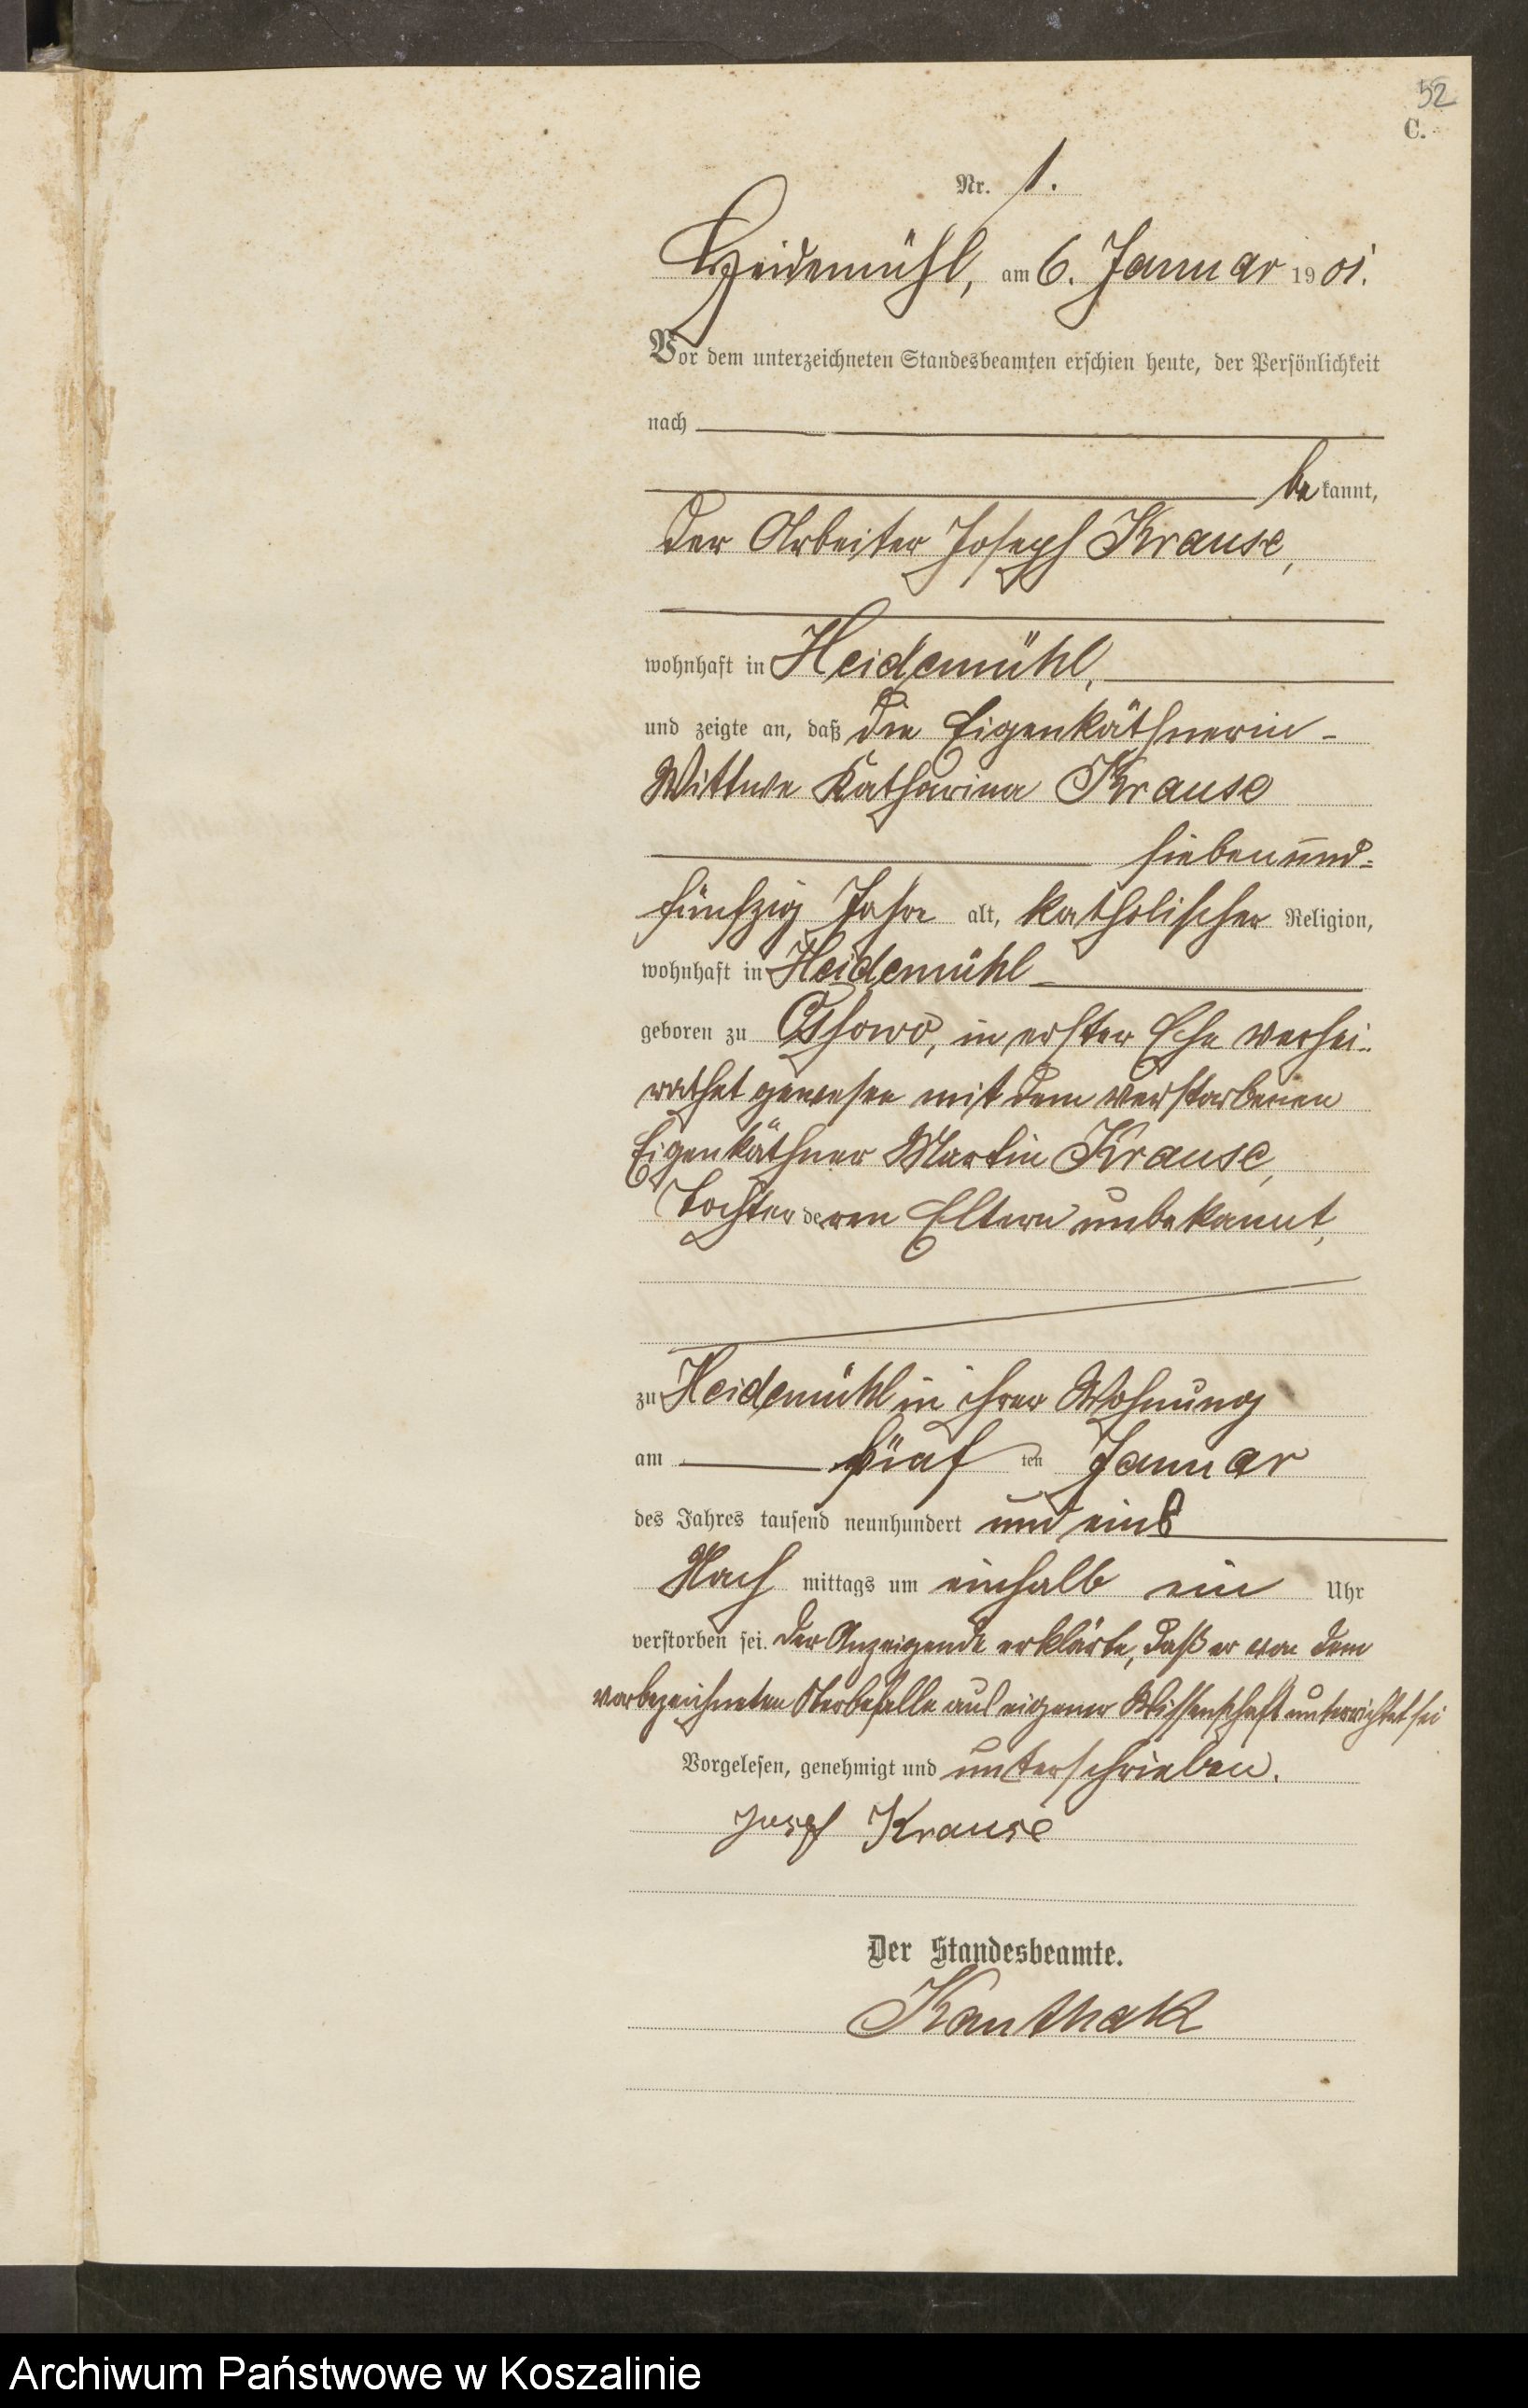 52
C.
Nr. 1.
Heidemühl, am 6. Januar 1901.
Vor dem unterzeichneten Standesbeamten erschien heute, der Persönlichkeit
nach
bekannt,
der Arbeiter Joseph Krause,
wohnhaft in Heidemühl,
und zeigte an, daß die Eigenkäthnerin-
Wittwe Katharina Krause
siebenund-
fünfzig Jahre alt, katholischer Religion,
wohnhaft in Heidemühl
geboren zu Ossowo, in erster Ehe verhei-
rathet gewesen mit dem verstorbenen
Eigenkäthner Martin Krause,
Tochter deren Eltern unbekannt,
zu Heidemühl in ihrer Wohnung
am fünf ten Januar
des Jahres tausend neunhundert und eins
Nach mittags um einhalb ein Uhr
verstorben sei. Der Anzeigende erklärte, daß er von dem
vorbezeichneten Sterbefalle aus eigener Wissenschaft unterrichtet sei
Vorgelesen, genehmigt und unterschrieben.
Josef Krause
Der Standesbeamte.
Kanthak
Archiwum Państwowe w Koszalinie